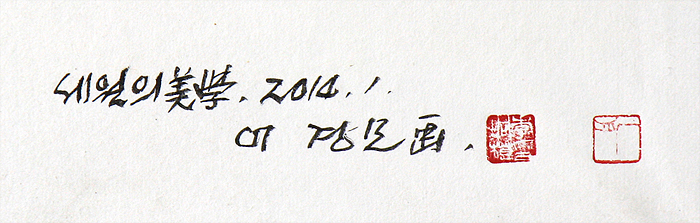 세월의 美學. 2014. 1.
이 경모 画.